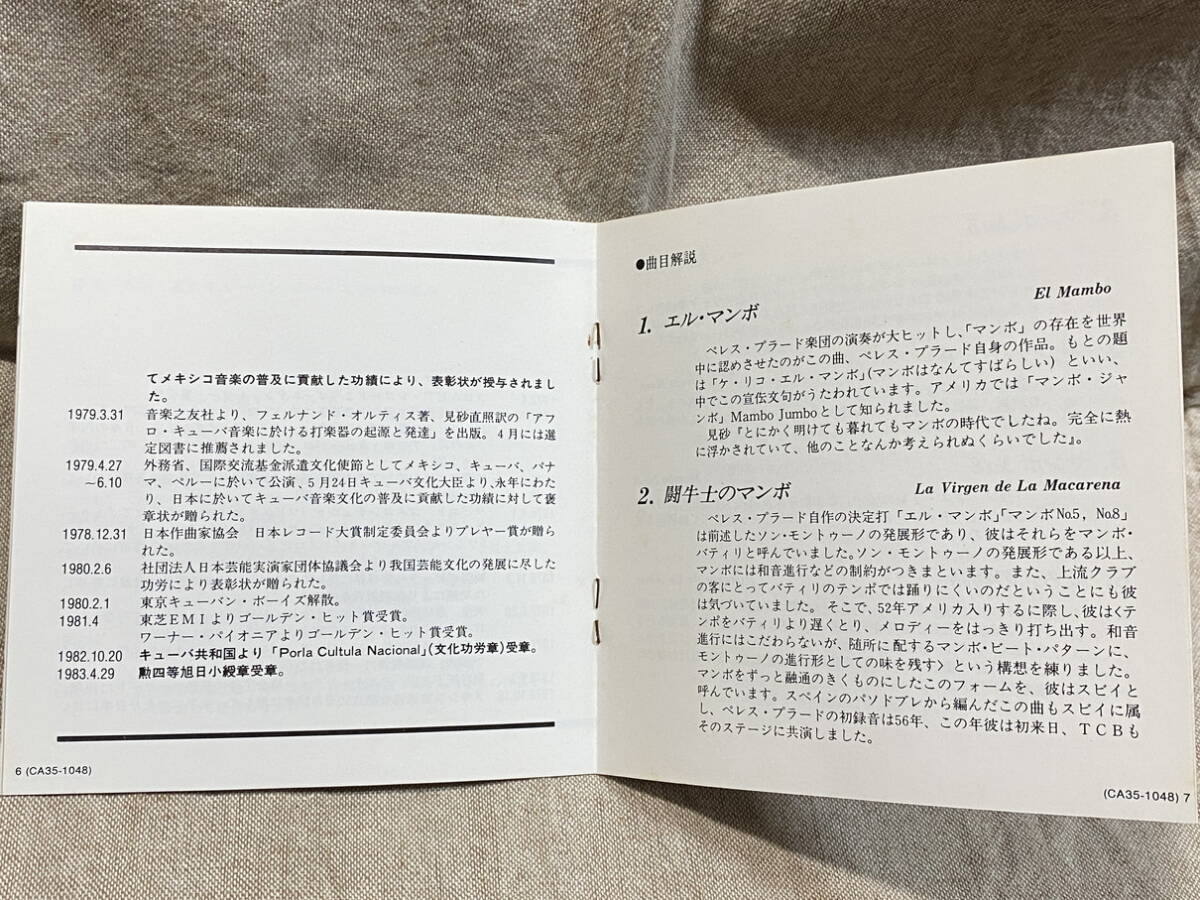 てメキシコ音楽の普及に貢献した功績により、表彰状が授与されまし
た。
1979.3.31 音楽之友社より、フェルナンド・オルティス著、見砂直照訳の「アフ
ロ・キューバ音楽に於ける打楽器の起源と発達」を出版。4月には選
定図書に推薦されました。
1979.4.27 外務省、国際交流基金派遣文化使節としてメキシコ、キューバ、パナ
～6.10 マ、ペルーに於いて公演、5月24日キューバ文化大臣より、永年にわた
り、日本に於いてキューバ音楽文化の普及に貢献した功績に対して褒
章状が贈られた。
1978.12.31 日本作曲家協会 日本レコード大賞制定委員会よりプレヤー賞が贈ら
れた。
1980.2.6 社団法人日本芸能実演家団体協議会より我国芸能文化の発展に尽した
功労により表彰状が贈られた。
1980.2.1 東京キューバン・ボーイズ解散。
1981.4 東芝EMIよりゴールデン・ヒット賞受賞。
ワーナー・パイオニアよりゴールデン・ヒット賞受賞。
1982.10.20 キューバ共和国より「Porla Cultula Nacional」(文化功労章)受章。
1983.4.29 勲四等旭日小綬章受章。
6 (CA35-1048)
●曲目解説
El Mambo
1. エル・マンボ
ペレス・プラード楽団の演奏が大ヒットし、「マンボ」の存在を世界
中に認めさせたのがこの曲、ペレス・プラード自身の作品。もとの題
は「ケ・リコ・エル・マンボ」(マンボはなんてすばらしい)といい、
中でこの宣伝文句がうたわれています。アメリカでは「マンボ・ジャ
ンボ」Mambo Jumboとして知られました。
見砂『とにかく明けても暮れてもマンボの時代でしたね。完全に熱
に浮かされていて、他のことなんか考えられぬくらいでした』。
2. 闘牛士のマンボ
La Virgen de La Macarena
ペレス・プラード自作の決定打「エル・マンボ」「マンボNo.5, No.8」
は前述したソン・モントゥーノの発展形であり、彼はそれらをマンボ・
バティリと呼んでいました。ソン・モントゥーノの発展形である以上、
マンボには和音進行などの制約がつきまといます。また、上流クラブ
の客にとってバティリのテンポでは踊りにくいのだということにも彼
は気づいていました。そこで、52年アメリカ入りするに際し、彼は〈テ
ンポをバティリより遅くとり、メロディーをはっきり打ち出す。和音
進行にはこだわらないが、随所に配するマンボ・ビート・パターンに、
モントゥーノの進行形としての味を残す〉という構想を練りました。
マンボをずっと融通のきくものにしたこのフォームを、彼はスビイと
呼んでいます。スペインのパソドブレから編んだこの曲もスビイに属
し、ペレス・プラードの初録音は56年、この年彼は初来日、TCBも
そのステージに共演しました。
(CA35-1048) 7